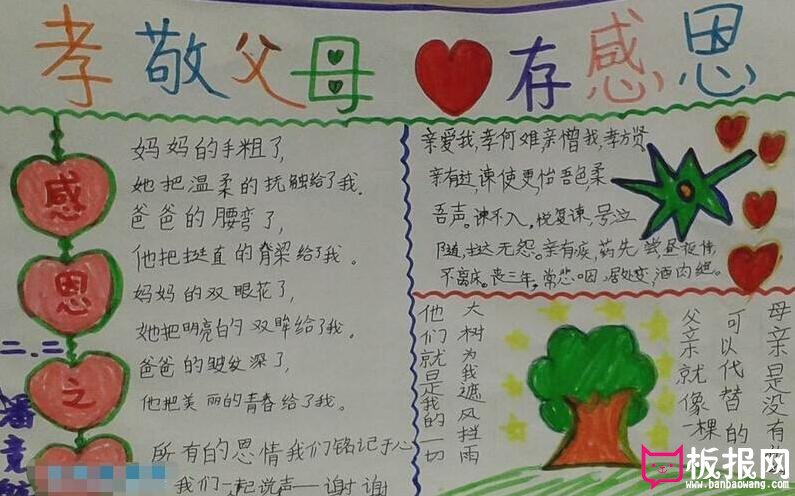 孝敬父母 存感恩
感
恩
之
二.二
潘竟
妈妈的手粗了,
她把温柔的抚触给了我.
爸爸的腰弯了,
他把挺直的脊梁给了我。
妈妈的双眼花了,
她把明亮的双眸给了我。
爸爸的皱纹深了,
他把美丽的青春给了我.
所有的恩情我们铭记于心
我们一起说声——谢谢
亲爱我,孝何难,亲憎我,孝方贤
亲有过,谏使更怡吾色柔
吾声。谏不入,悦复谏,号泣
随,挞无怨。亲有疾,药先尝昼夜侍
不离床。丧三年,常悲咽,居处变,酒肉绝。
母亲是没有
可以代替的
父亲就像一棵
大树为我遮风挡雨
他们就是我的一切
板报网
www.banbaowang.com